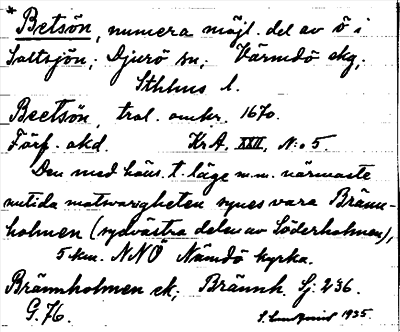 * Betsön, numera möjl. del av ö i
Saltsjön; Djurö sn; Värmdö skg;
Sthlms l.
Beetsön, trol. omkr. 1670.
Förf. okd. KrA, XXII, N:o 5.
Den med häns. t. läge m.m. närmaste
nutida motsvarigheten synes vara Bränn-
holmen (sydvästra delen av Söderholmen),
5 km. NNO Nämdö kyrka.
Brännholmen ek; Brännh. Gj: 236.
G. 76. 1935